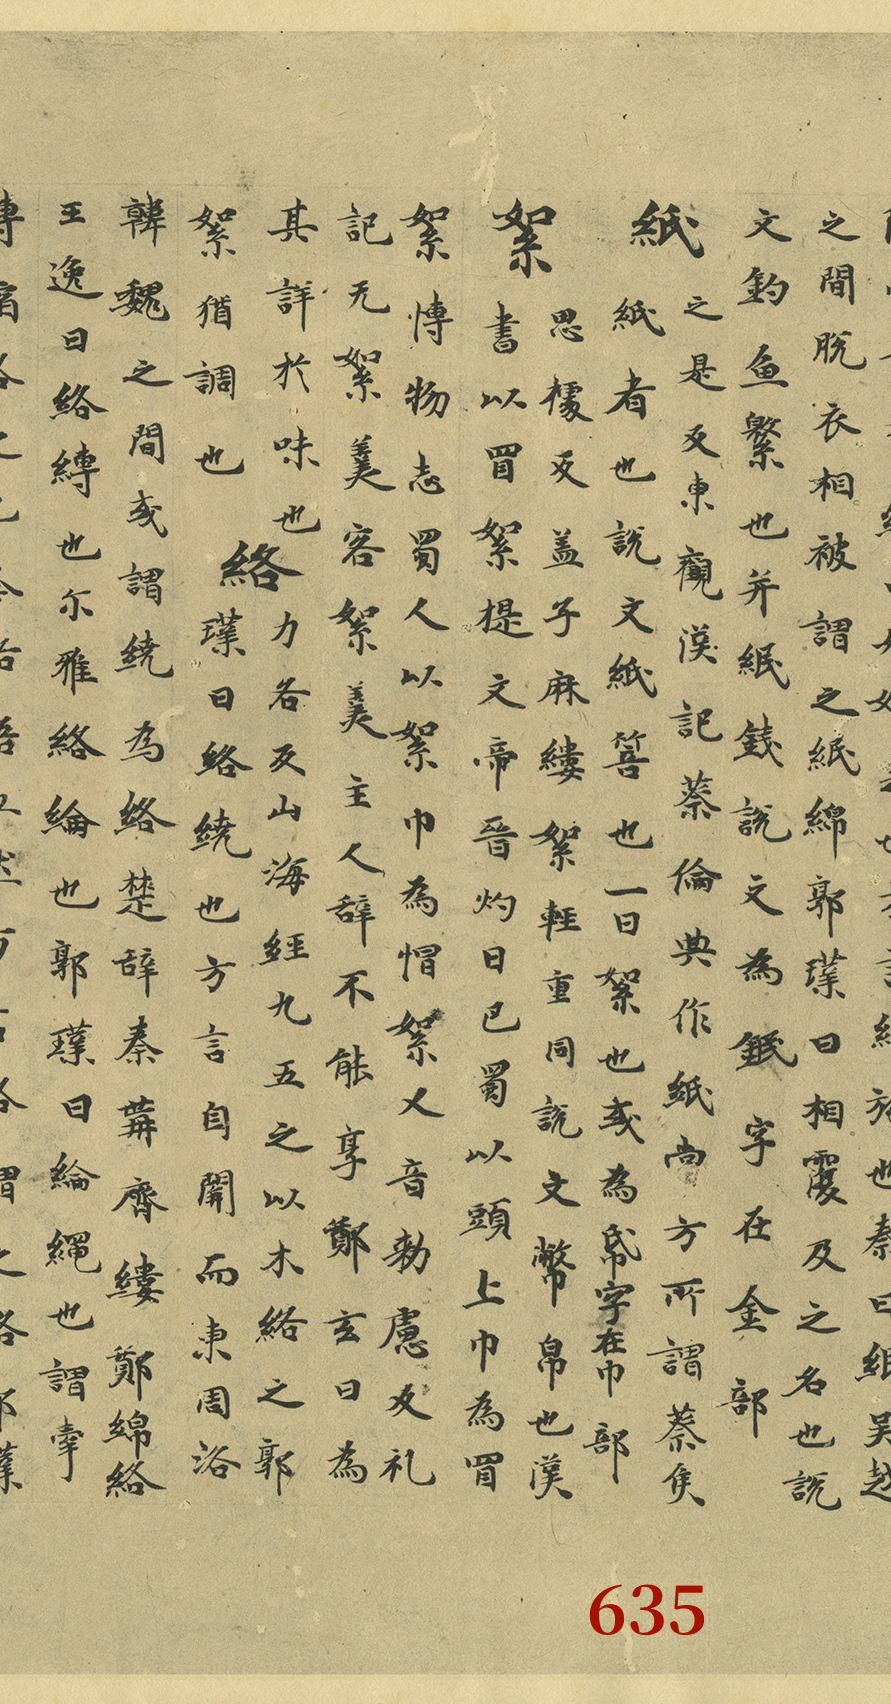 之間脫衣相被謂之緍綿郭璞曰相覆及之名也說
文釣魚繁也并緍錢說文為鍲字在金部
紙之是反東觀漢記蔡倫典作紙尚方所謂蔡侯
紙者也說文紙箁也一曰絮也或為帋字在巾部
絮思據反孟子麻縷絮輕重同說文幣帛也漢
書以冒絮提文帝晉灼曰巴蜀以頭上巾為冒
絮博物志蜀人以絮巾為帽絮又音勑慮反礼
記无絮羹客絮羹主人辞不能享鄭玄曰為
其詳於味也絡力各反山海經九五之以木絡之郭
絮猶調也璞曰絡繞也方言自關而東周洛
韓魏之間或謂繞為絡楚辞秦篝齊縷鄭綿絡
王逸曰絡縛也尒雅絡綸也郭璞曰綸繩也謂牽
635